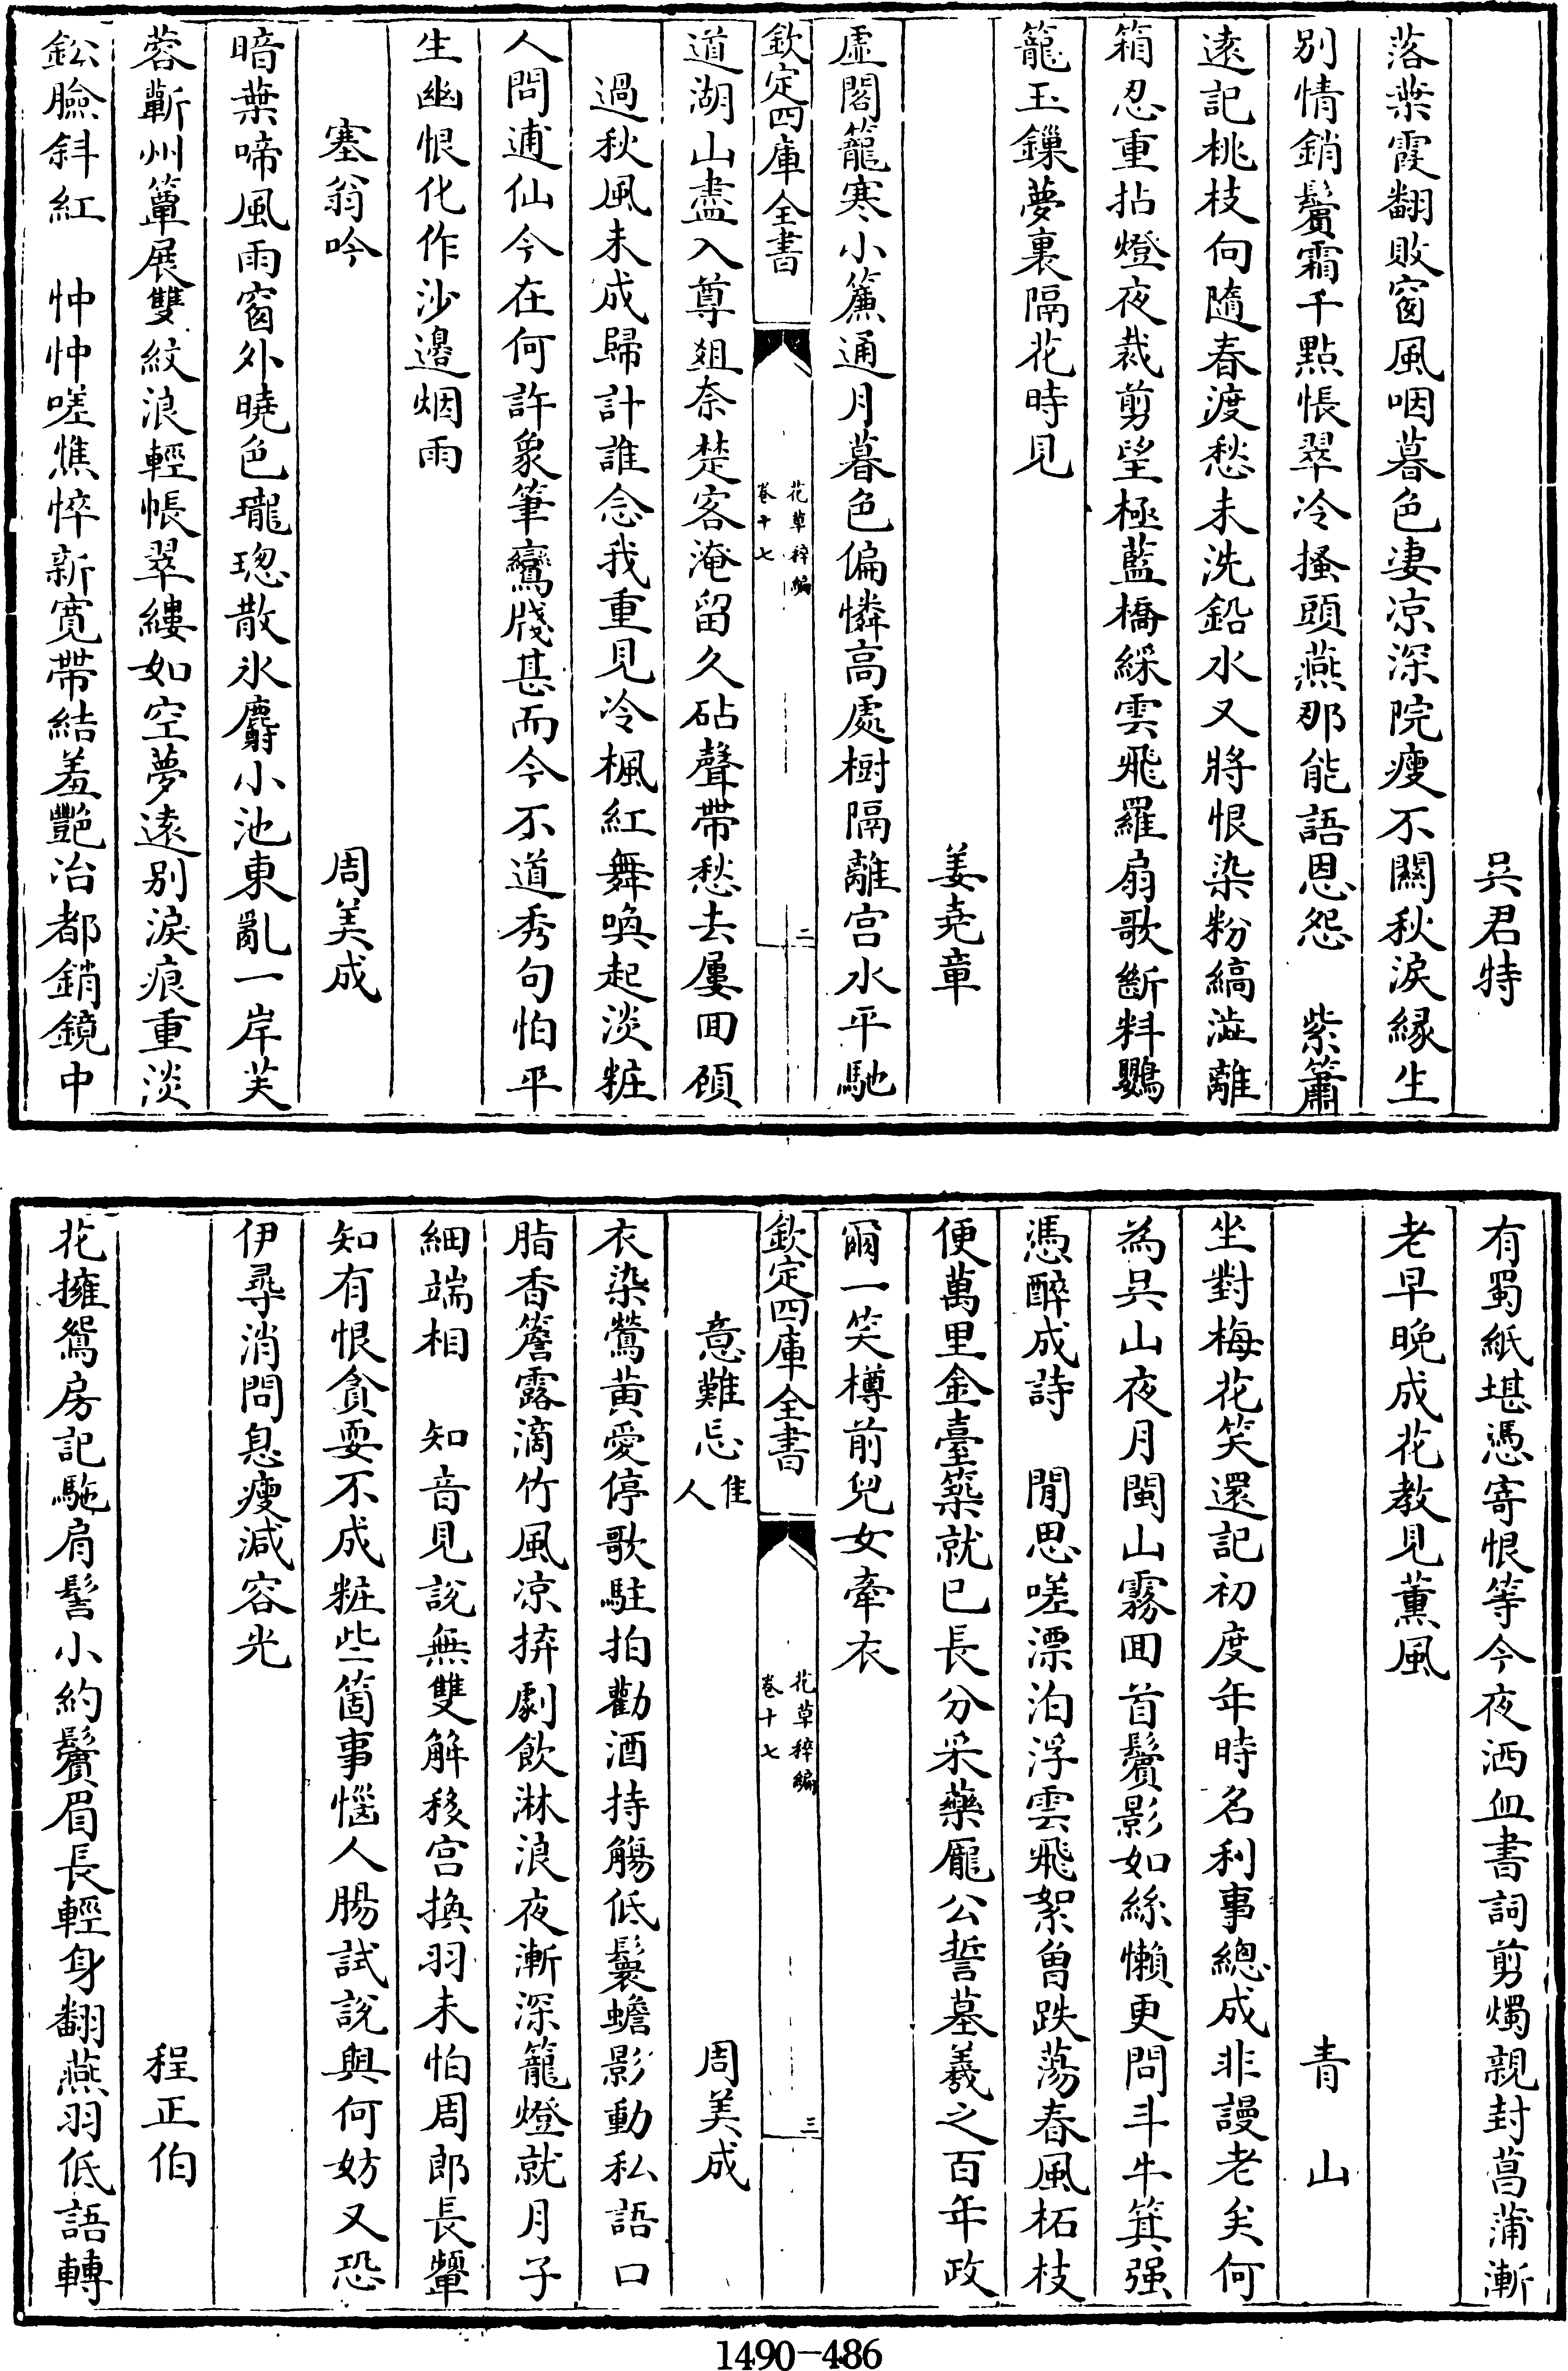 吳君特
落葉霞翻敗窗風咽暮色凄凉深院瘦不關秋淚縁生
别情銷鬢霜千點悵翠冷搔頭燕那能語恩怨　紫簫
逺記桃枝向隨春渡愁未洗鉛水又將恨染粉縞澁離
箱忍重拈燈夜裁剪望極藍橋綵雲飛羅扇歌斷料鸚
籠玉鏁夢裏隔花時見
姜堯章
虚閣籠寒小簾通月暮色偏憐髙處樹隔離宫水平馳
欽定四庫全書
花草稡編
卷十七
二
道湖山盡入尊爼奈楚客淹留久砧聲帶愁去屢囬頋
過秋風未成歸計誰念我重見冷楓紅舞喚起淡粧
人問逋仙今在何許象筆鸞牋甚而今不道秀句怕平
生幽恨化作沙邊烟雨
塞翁吟
周美成
暗葉啼風雨窗外曉色瓏璁散氷麝小池東亂一岸芙
蓉蘄州簟展雙紋浪輕帳翠縷如空夢逺别淚痕重淡
鈆臉斜紅　忡忡嗟憔悴新寛帶結羞艷冶都銷鏡中
有蜀紙堪憑寄恨等今夜洒血書詞剪燭親封菖蒲漸
老早晩成花教見薫風
青山
坐對梅花笑還記初度年時名利事總成非謾老矣何
為吳山夜月閩山霧囬首鬢影如絲懶更問斗牛箕强
憑醉成詩　閒思嗟漂泊浮雲飛絮曾跌蕩春風柘枝
便萬里金臺築就已長分采藥龎公誓墓羲之百年政
爾一笑樽前兒女牽衣
欽定四庫全書
花草稡編
卷十七
三
意難忘佳人
周美成
衣染鶯黄愛停歌駐拍勸酒持觴低鬟蟬影動私語口
脂香簷露滴竹風凉拚劇飲淋浪夜漸深籠燈就月子
細端相　知音見説無雙解移宫換羽未怕周郎長顰
知有恨貪耍不成粧些箇事惱人腸試説與何妨又恐
伊尋消問息瘦減容光
程正伯
花擁鴛房記駞肩髻小約鬢眉長輕身翻燕羽低語轉
1490-486